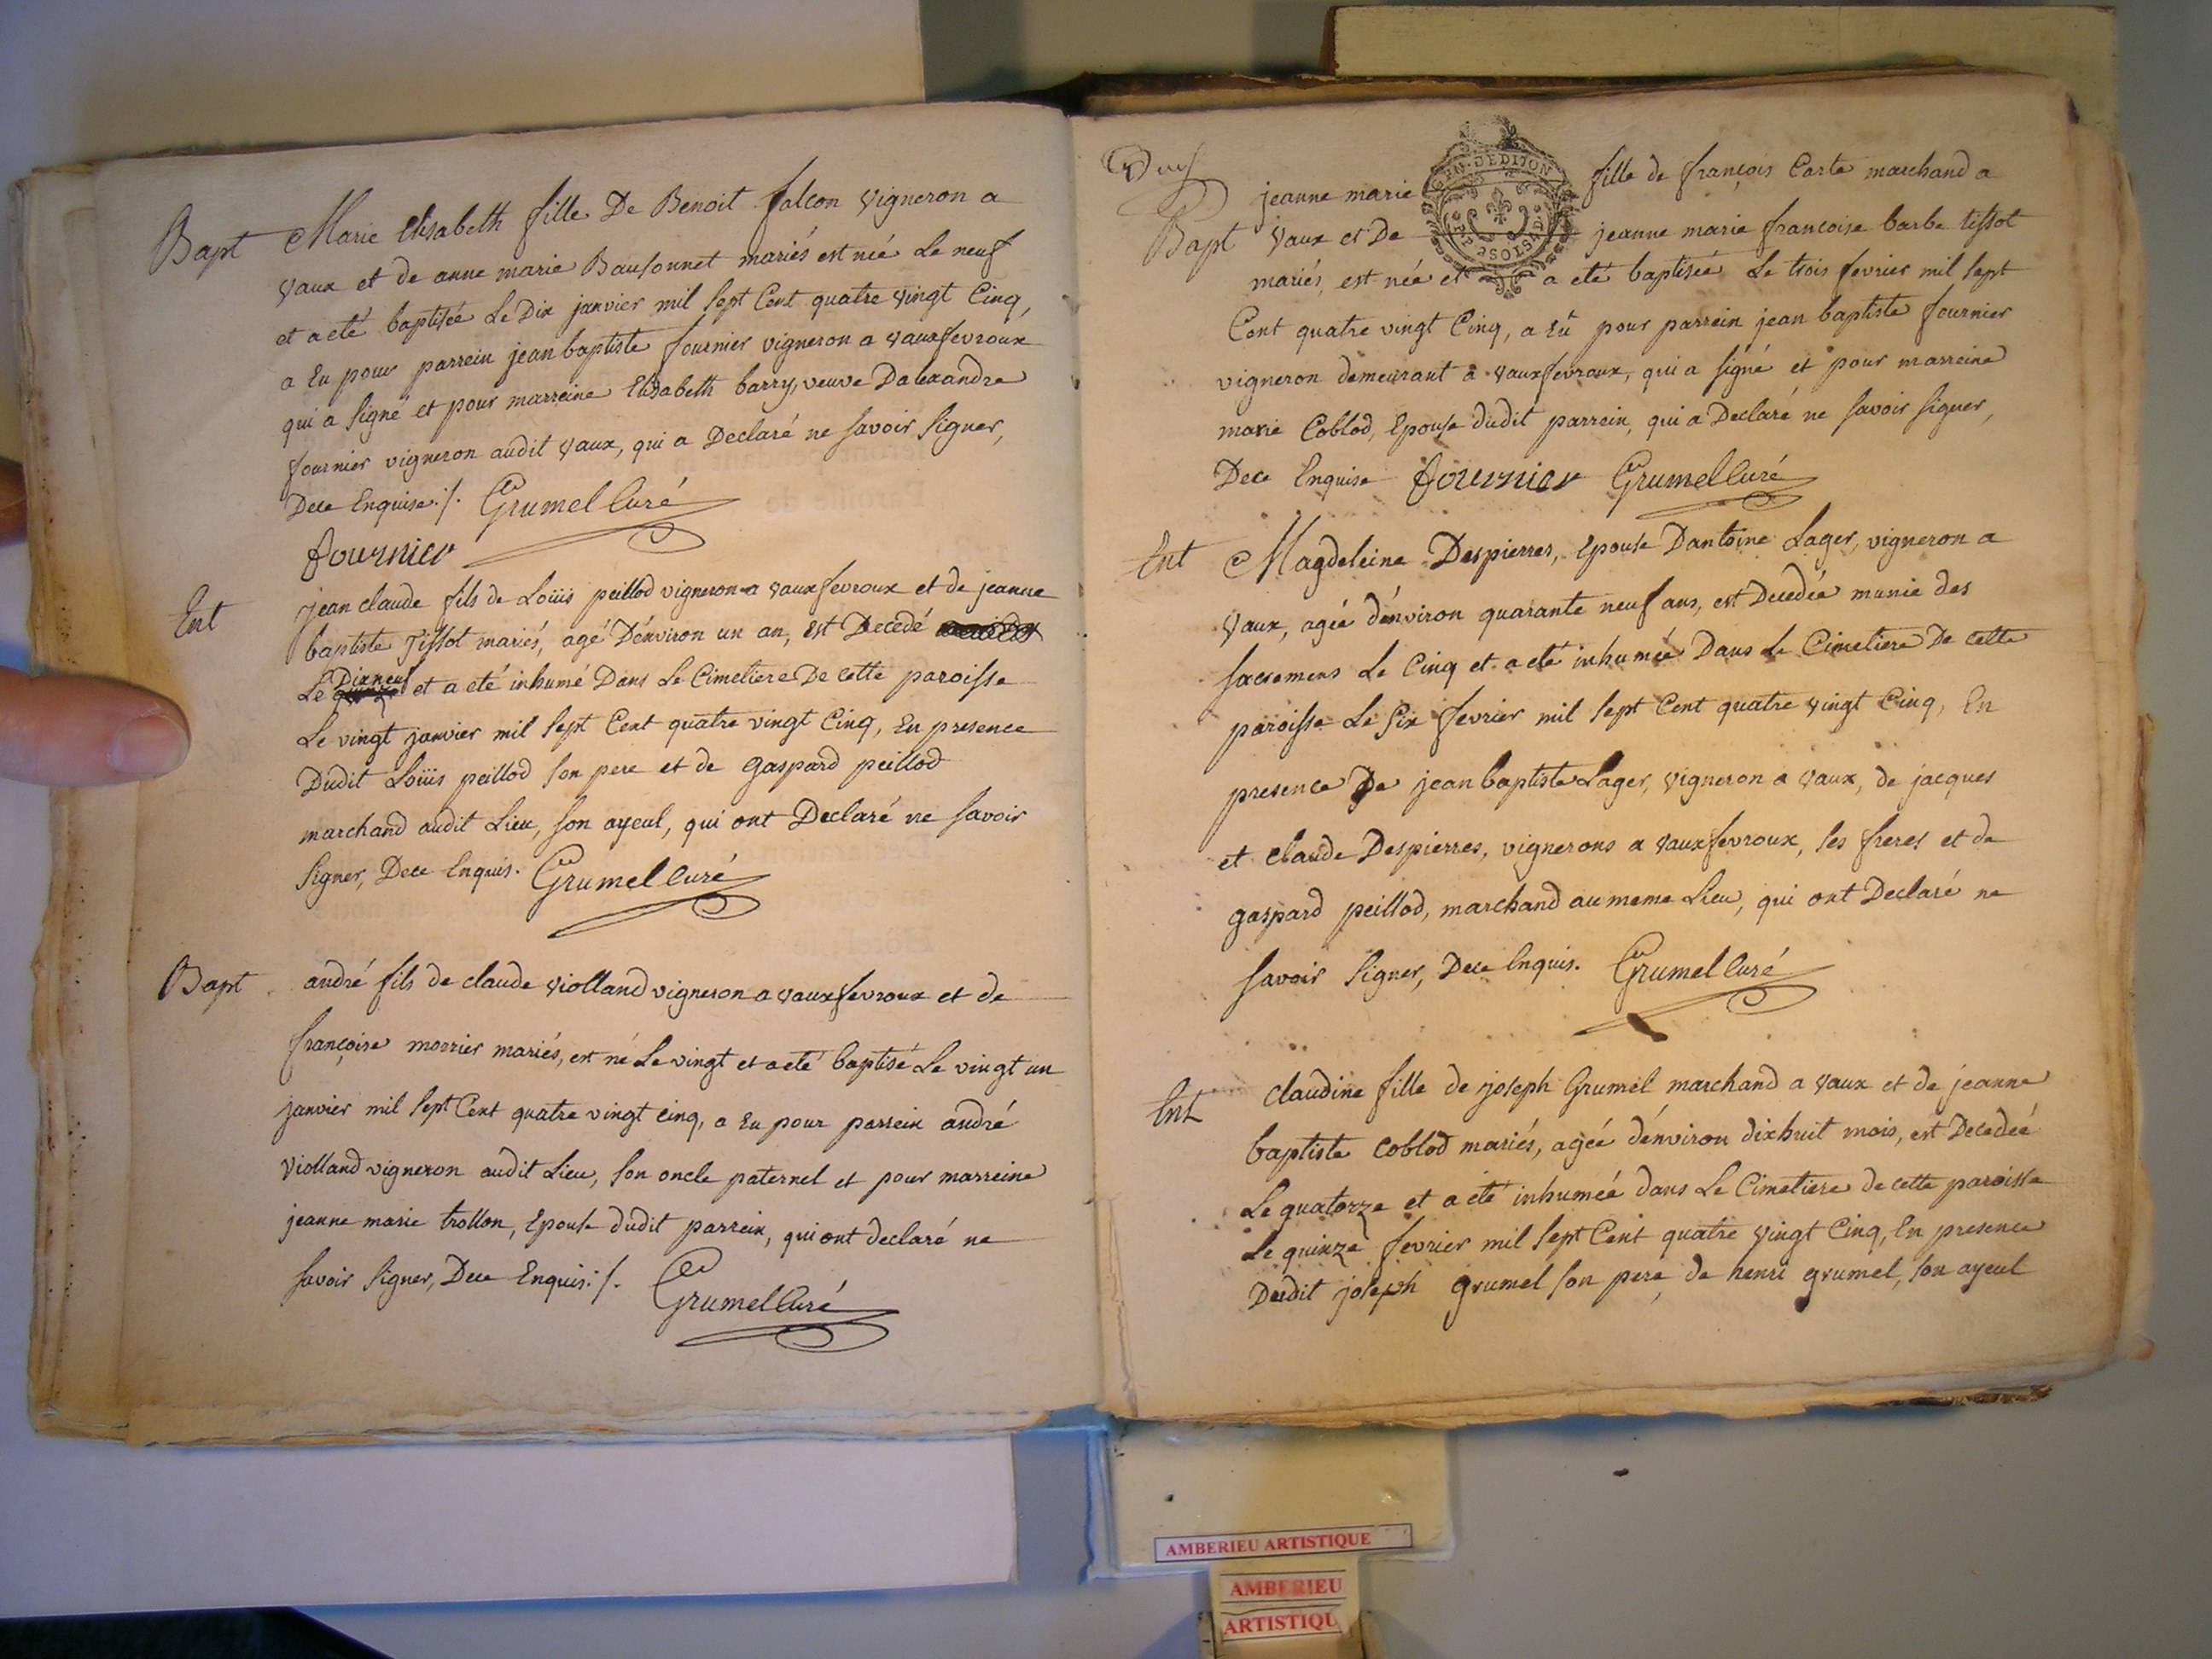 Bapt Marie Elisabeth fille De Benoit falcon vigneron a
vaux et de anne marie Bausonnet mariés est née Le neuf
et a eté baptisée Le Dix janvier mil sept Cent quatre vingt Cinq,
a Eu pour parrein jean baptiste fournier vigneron a vauxfevroux
qui a signé et pour marreine Elisabeth barry, veuve Dalexandre
fournier vigneron audit vaux, qui a Declaré ne savoir signer,
Dece Enquise ./. Grumel Curé
fournier
Ent jean claude fils de Loüis peillod vigneron a vauxfevroux et de jeanne
baptiste Tissot mariés, agé D'énviron un an, est Decedé
Le Dixneuf et a eté inhumé Dans Le Cimetiere De cette paroisse
Le vingt janvier mil sept Cent quatre vingt Cinq, En presence
Dudit Loüis peillod son pere et de gaspard peillod
marchand audit Lieu, son ayeul, qui ont Declaré ne savoir
signer, Dece Enquis. Grumel Curé
Bapt andré fils de claude violland vigneron a vauxfevroux et de
françoise morrier mariés, est né Le vingt et a eté baptisé Le vingt un
janvier mil sept Cent quatre vingt cinq, a Eu pour parrein andré
violland vigneron audit Lieu, son oncle paternel et pour marreine
jeanne marie trollon, Epouse dudit parrein, qui ont declaré ne
savoir signer, Dece Enquis ./. Grumel Curé
GEN. DE DIJON
jeanne marie fille de françois Carte marchand a
Bapt vaux et De jeanne marie francoise barbe tissot
mariés, est née et a eté baptisée Le trois fevrier mil sept
Cent quatre vingt Cinq, a Eû pour parrein jean baptiste fournier
vigneron demeurant a vauxfevroux, qui a signé et pour marreine
marie Coblod, Epouse dudit parrein, qui a Declaré ne savoir signer,
Dece Enquise fournier Grumel Curé
Ent Magdeleine Despierres, Epouse Dantoine Lager, vigneron a
vaux, ageé d'énviron quarante neuf ans, est Decedée munie des
sacremens Le Cinq et a eté inhumée Dans Le Cimetiere De cette
paroisse Le six fevrier mil sept Cent quatre vingt Cinq, En
presence De jean baptiste Lager, vigneron a vaux, de jacques
et claude Despierres, vignerons a vauxfevroux, ses freres et de
gaspard peillod, marchand au meme Lieu, qui ont Declaré ne
savoir signer, Dece Enquis. Grumel Curé
Ent Claudine fille de joseph Grumel marchand a vaux et de jeanne
baptiste Coblod mariés, ageé d'énviron dixhuit mois, est Decedeé
Le quatorze et a eté inhumeé dans Le Cimetiere de cette paroisse
Le quinze fevrier mil sept Cent quatre vingt Cinq, En presence
Dudit joseph grumel son pere, de henri grumel, son ayeul
AMBERIEU ARTISTIQUE
AMBERIEU
ARTISTIQU